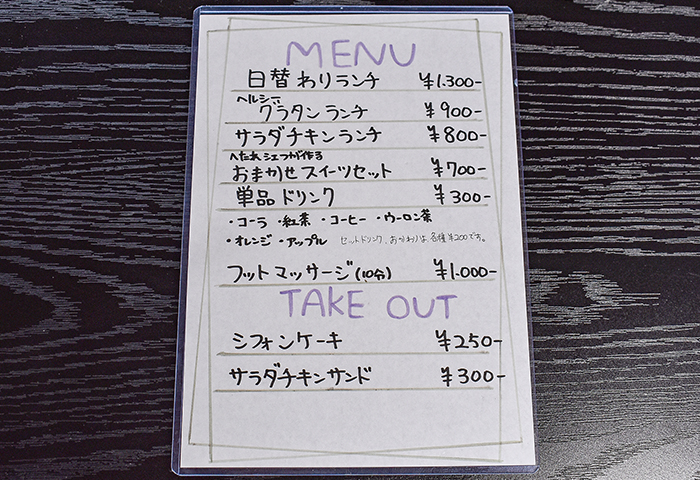 MENU
日替わりランチ ¥1.300-
ヘルシー
グラタンランチ ¥900-
サラダチキンランチ ¥800-
へたれシェフが作る
おまかせスイーツセット ¥700-
単品ドリンク ¥300-
・コーラ ・紅茶 ・コーヒー ・ウーロン茶
・オレンジ ・アップル セットドリンク、おかわりは各種¥200です。
フットマッサージ(10分) ¥1.000-
TAKE OUT
シフォンケーキ ¥250-
サラダチキンサンド ¥300-